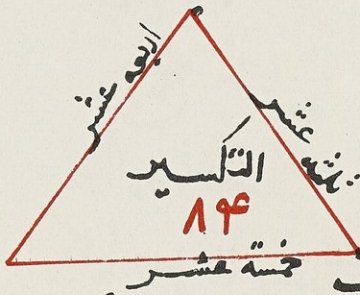 اربعة عشر
ثلثة عشر
التكسير
٨۴
خمسة عشر